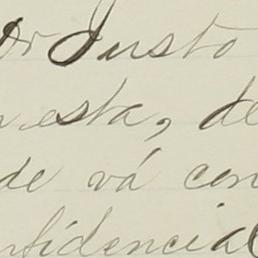 Dr Justo
esta, de
de vá con
nfidencial